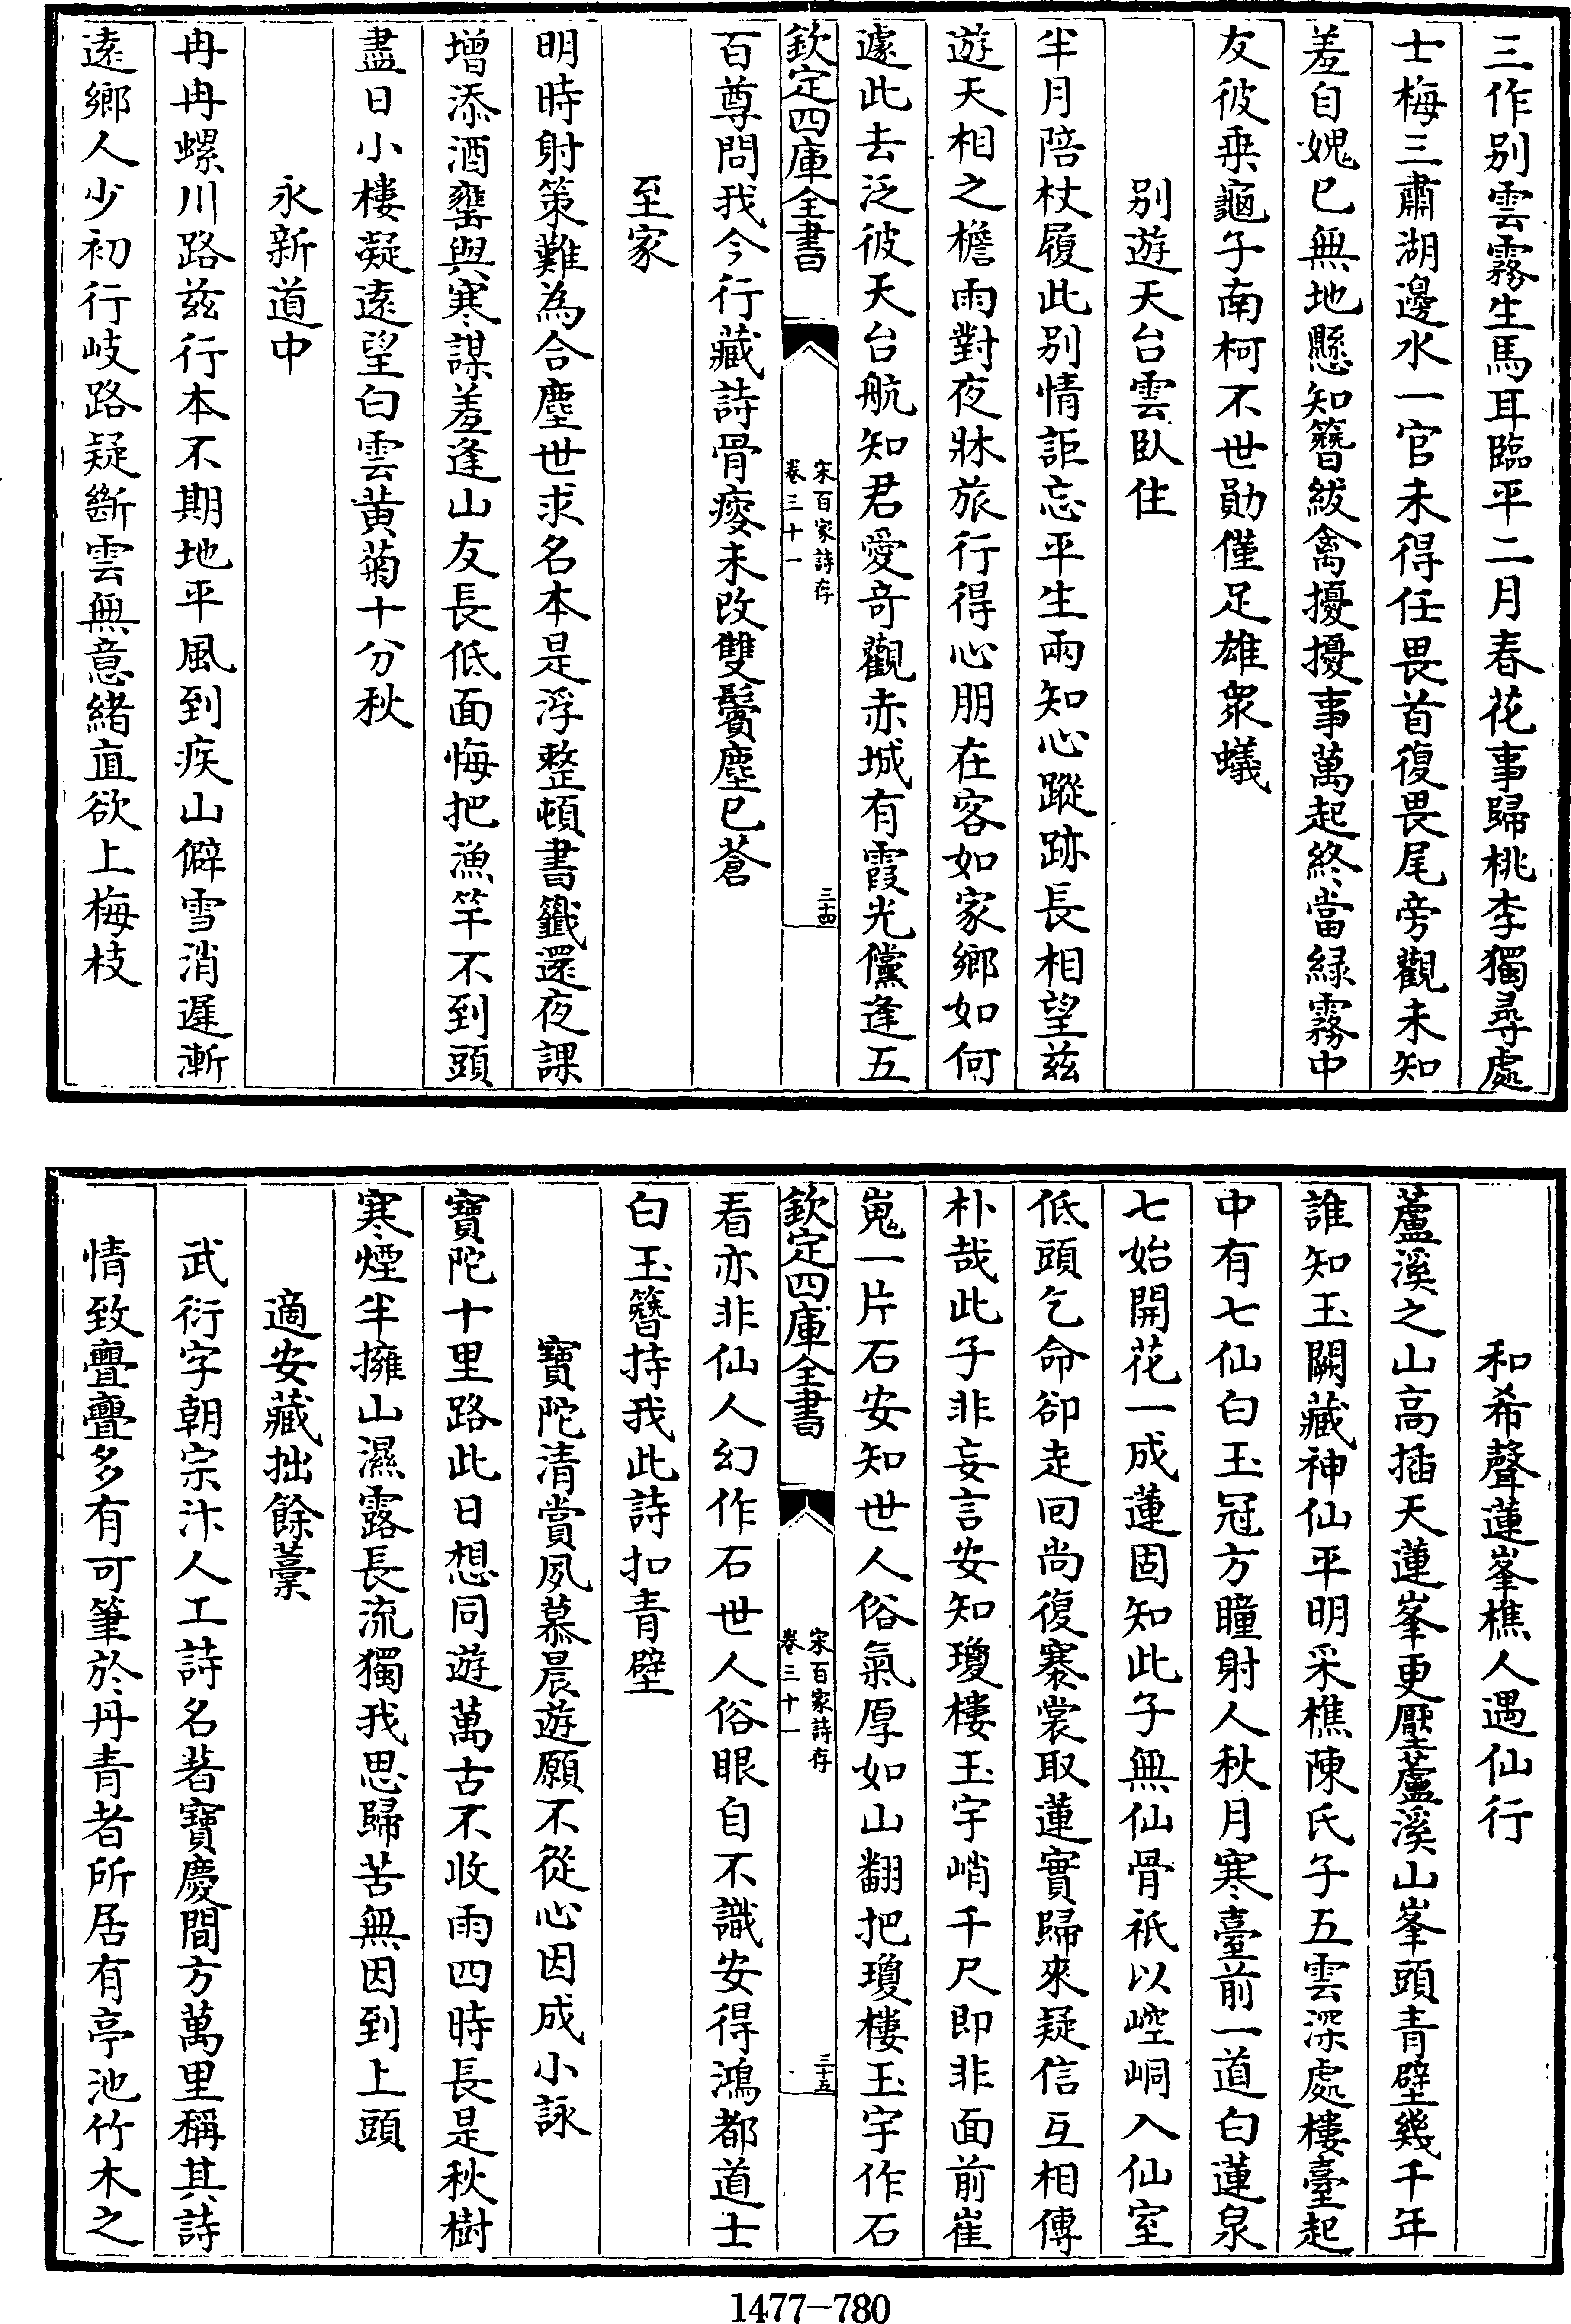 三作别雲霧生馬耳臨平二月春花事歸桃李獨尋處
士梅三肅湖邊水一官未得任畏首復畏尾旁觀未知
羞自媿已無地懸知簪紱禽擾擾事萬起終當緑霧中
友彼乗龜子南柯不世勛僅足雄衆蟻
别遊天台雲臥住
半月陪杖履此别情詎忘平生兩知心蹤跡長相望兹
遊天相之檐雨對夜牀旅行得心朋在客如家鄉如何
遽此去泛彼天台航知君愛奇觀赤城有霞光儻逢五
欽定四庫全書
宋百家詩存
卷三十一
三十四
百尊問我今行藏詩骨瘦未改雙鬢塵已蒼
至家
明時射策難為合塵世求名本是浮整頓書籤還夜課
増添酒甕與寒謀羞逢山友長低面悔把漁竿不到頭
盡日小樓凝遠望白雲黄菊十分秋
永新道中
冉冉螺川路兹行本不期地平風到疾山僻雪消遲漸
遠鄉人少初行岐路疑斷雲無意緒直欲上梅枝
和希聲蓮峯樵人遇仙行
蘆溪之山高插天蓮峯更壓蘆溪山峯頭青壁幾千年
誰知玉闕藏神仙平明采樵陳氏子五雲深處樓臺起
中有七仙白玉冠方瞳射人秋月寒臺前一道白蓮泉
七始開花一成蓮固知此子無仙骨祇以崆峒入仙室
低頭乞命卻走回尚復褰裳取蓮實歸來疑信互相傳
朴哉此子非妄言安知瓊樓玉宇峭千尺即非面前崔
嵬一片石安知世人俗氣厚如山翻把瓊樓玉宇作石
欽定四庫全書
宋百家詩存
卷三十一
三十五
看亦非仙人幻作石世人俗眼自不識安得鴻都道士
白玉簪持我此詩扣青壁
寶陀清賞夙慕晨遊願不從心因成小詠
寶陀十里路此日想同遊萬古不收雨四時長是秋樹
寒煙半擁山濕露長流獨我思歸苦無因到上頭
適安藏拙餘藁
武衍字朝宗汴人工詩名著寶慶間方萬里稱其詩
情致疊疊多有可筆於丹青者所居有亭池竹木之
1477-780